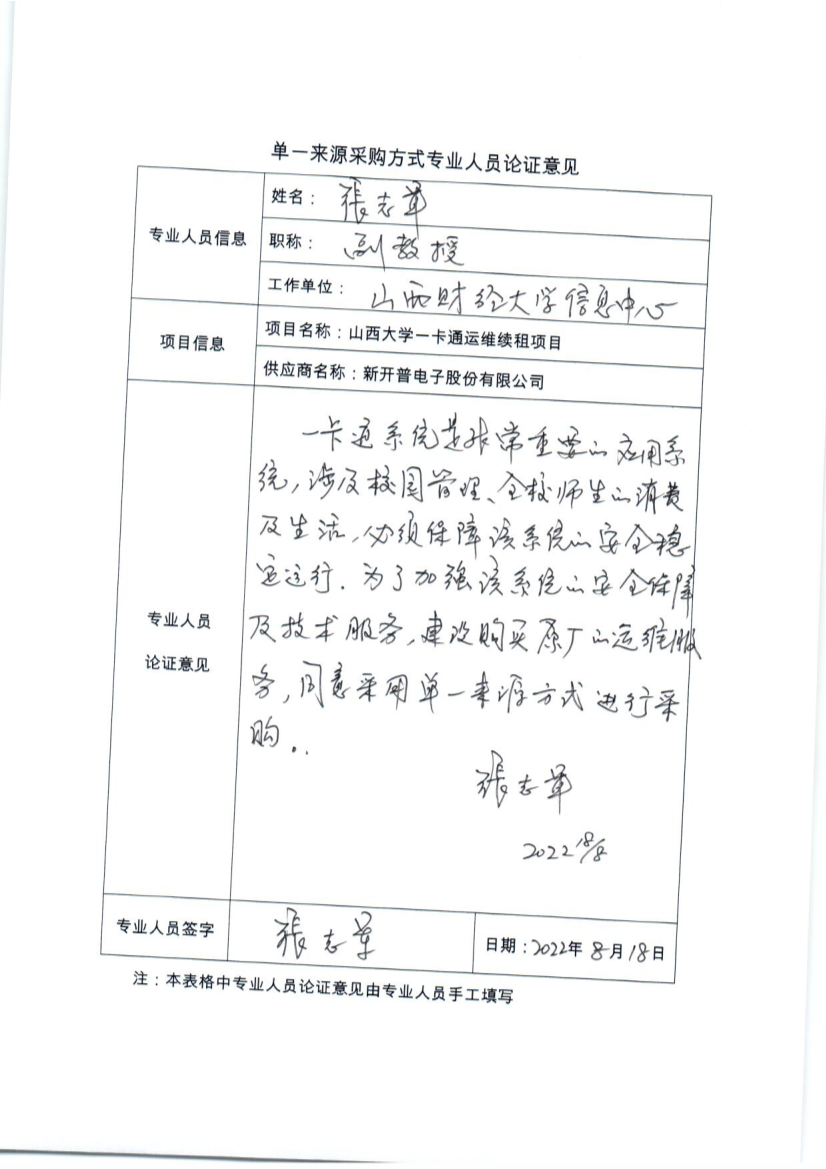 单一来源采购方式专业人员论证意见
专业人员信息
姓名：張志军
职称：副教授
工作单位：山西财经大学信息中心
项目信息
项目名称：山西大学一卡通运维续租项目
供应商名称：新开普电子股份有限公司
专业人员
论证意见
一卡通系统是非常重要的应用系
统，涉及校园管理、全校师生的消费
及生活，必须保障该系统的安全稳
定运行．为了加强该系统的安全保障
及技术服务，建议购买原厂的运维服
务，同意采用单一来源方式进行采
购．．
張志军
2022 18/8
专业人员签字
張志军
日期：2022年8月18日
注：本表格中专业人员论证意见由专业人员手工填写